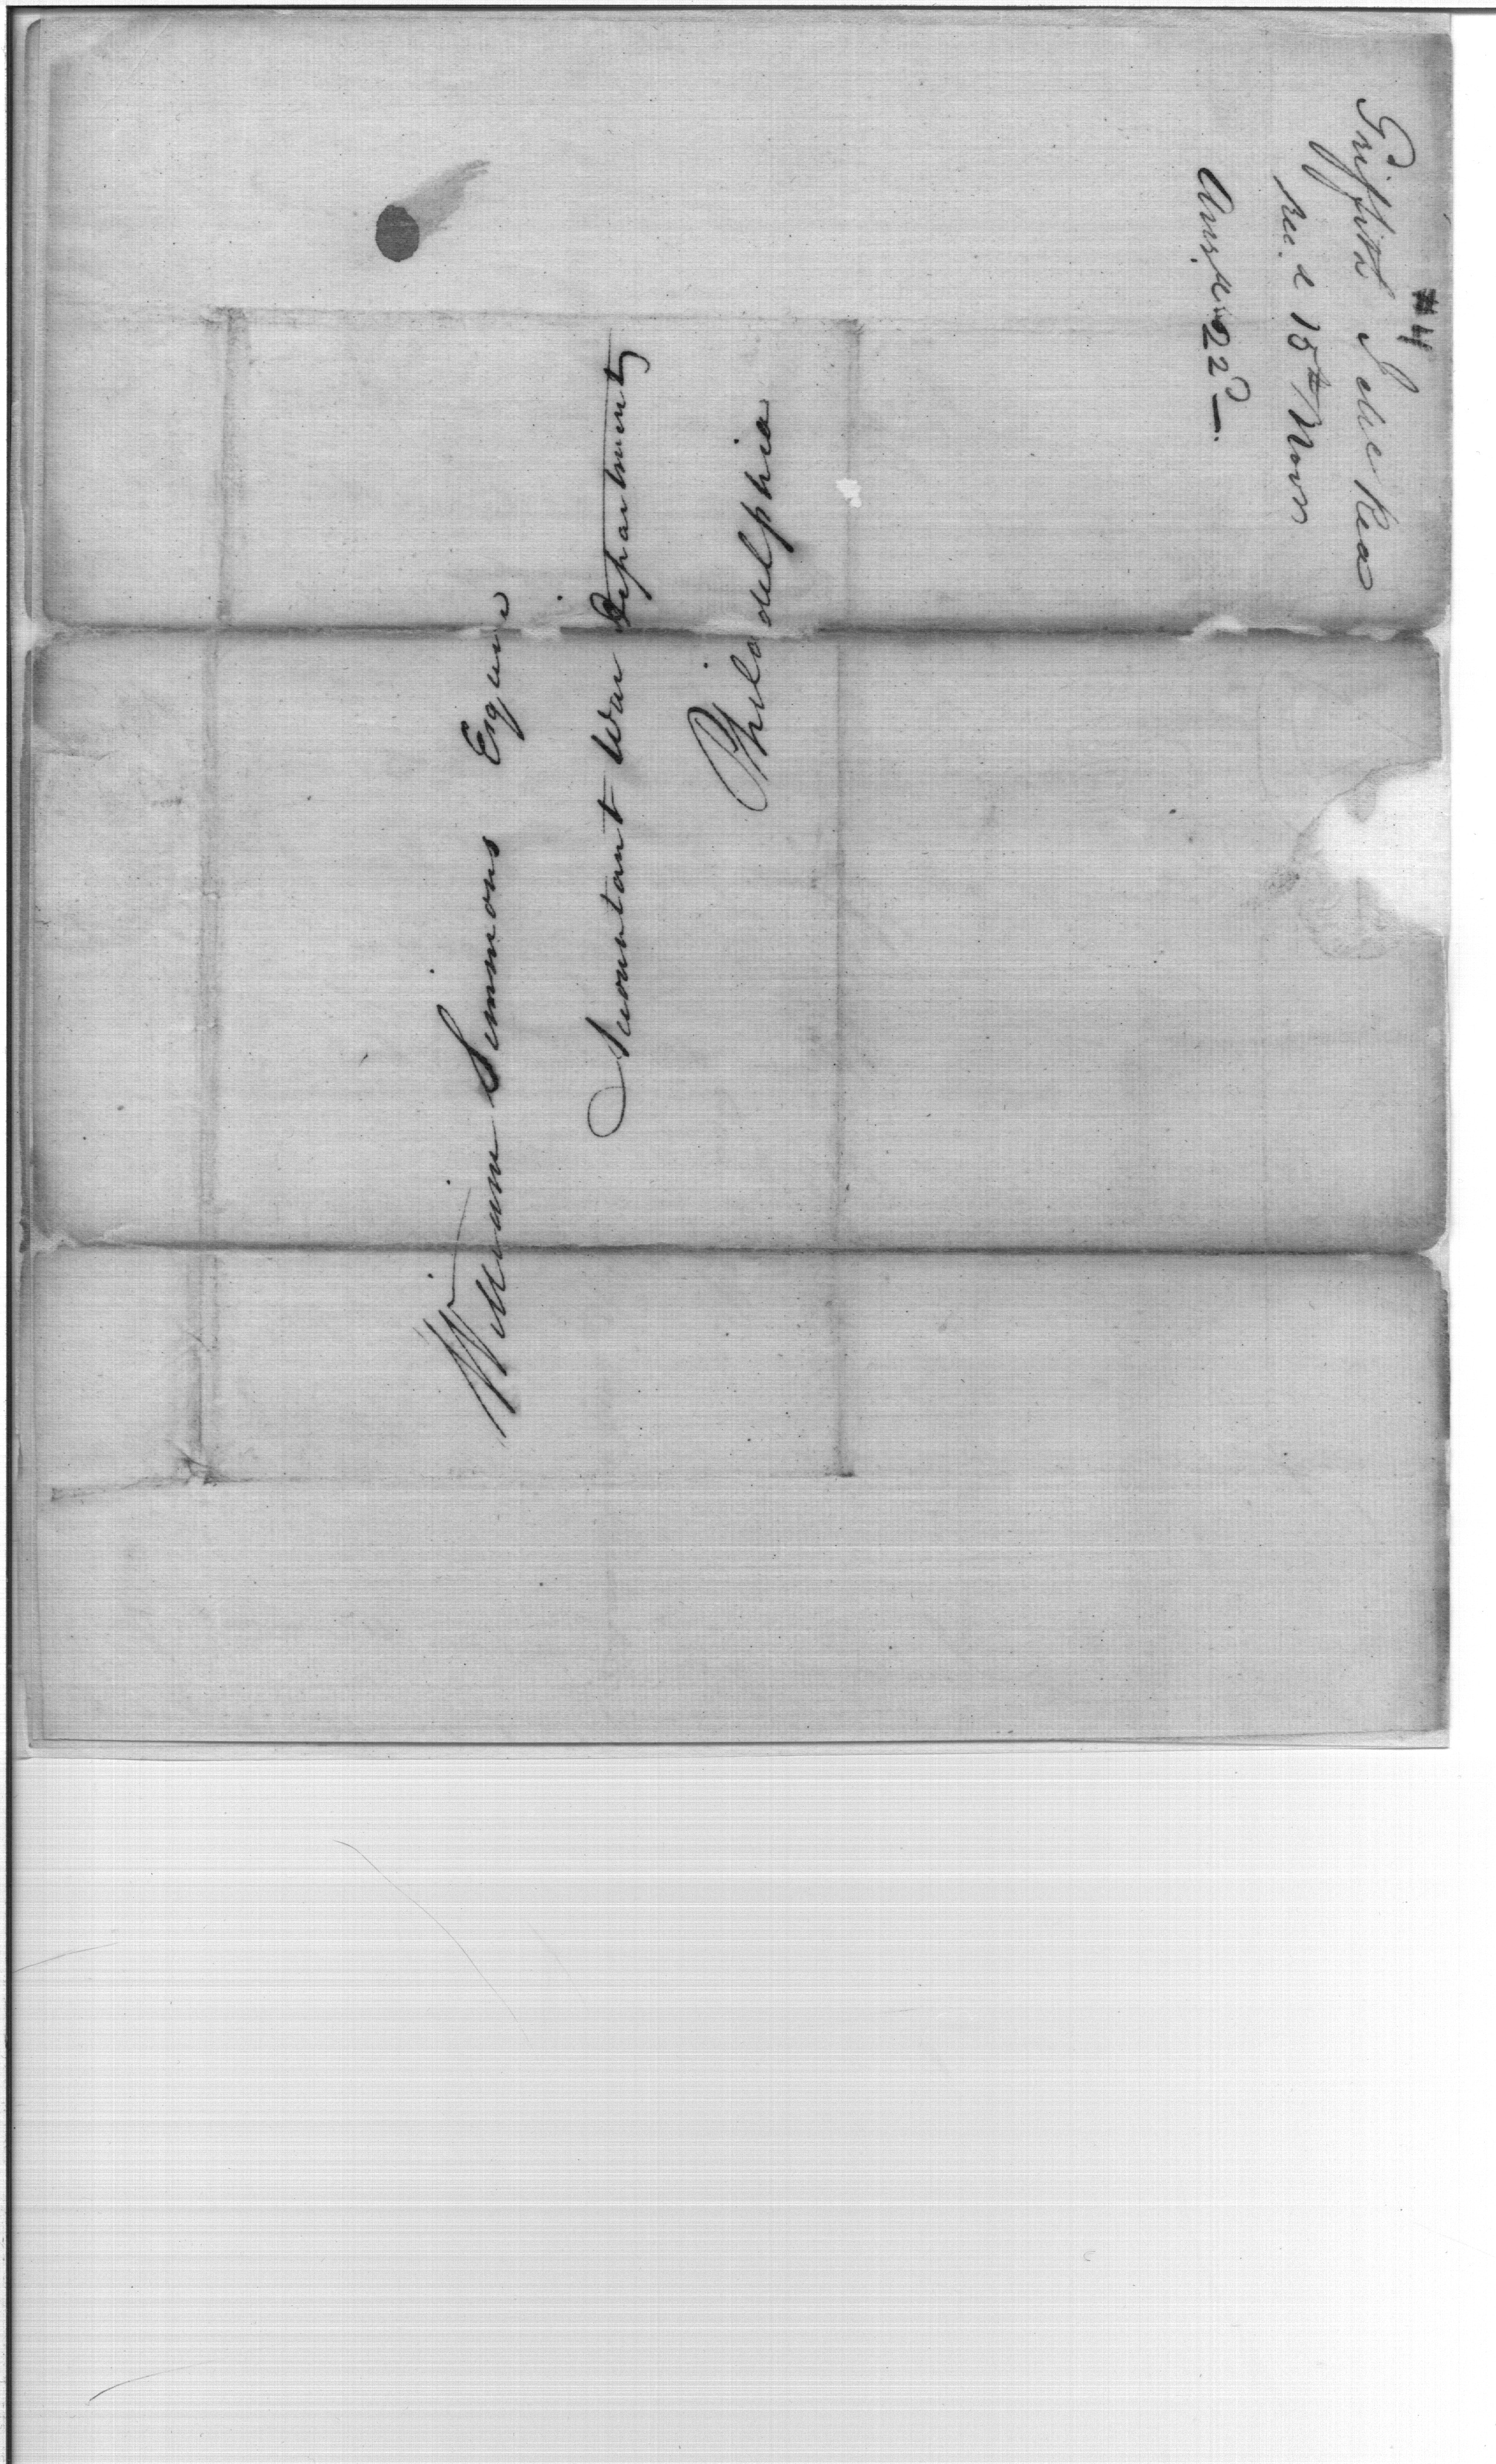 William Simmons Esquire
Accountant War Department
Philadelphia
#4
Griffith J McRea
rec.d 15th Novr
Ansd. 22d —.